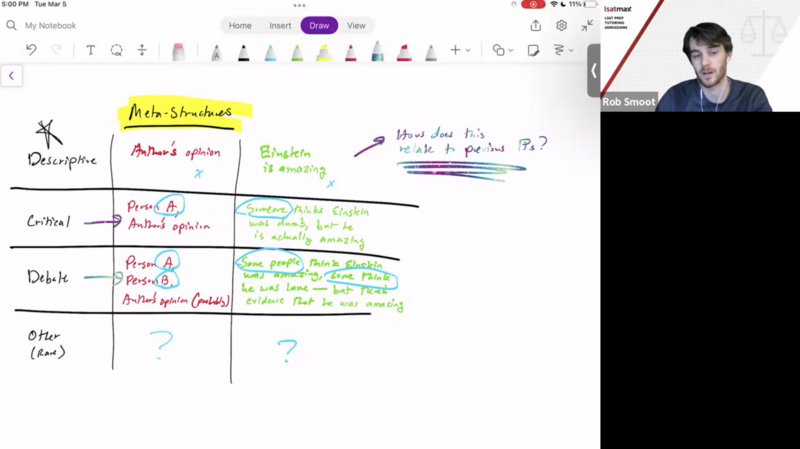 5:00 PM Tue Mar 5
11%
My Notebook
Home
Insert
Draw
View
lsatmax
LSAT PREP
TUTORING
ADMISSIONS
Rob Smoot
Meta-Structures
Descriptive
Author's opinion
x
Einstein
is amazing
x
How does this
relate to previous Ps?
Critical
Person A,
Author's opinion
Someone thinks Einstein
was dumb, but he
is actually amazing
Debate
Person A,
Person B,
Author's opinion (probably)
Some people think Einstein
was amazing, some think
he was lame — but
evidence that he was amazing
Other
(Rare)
?
?